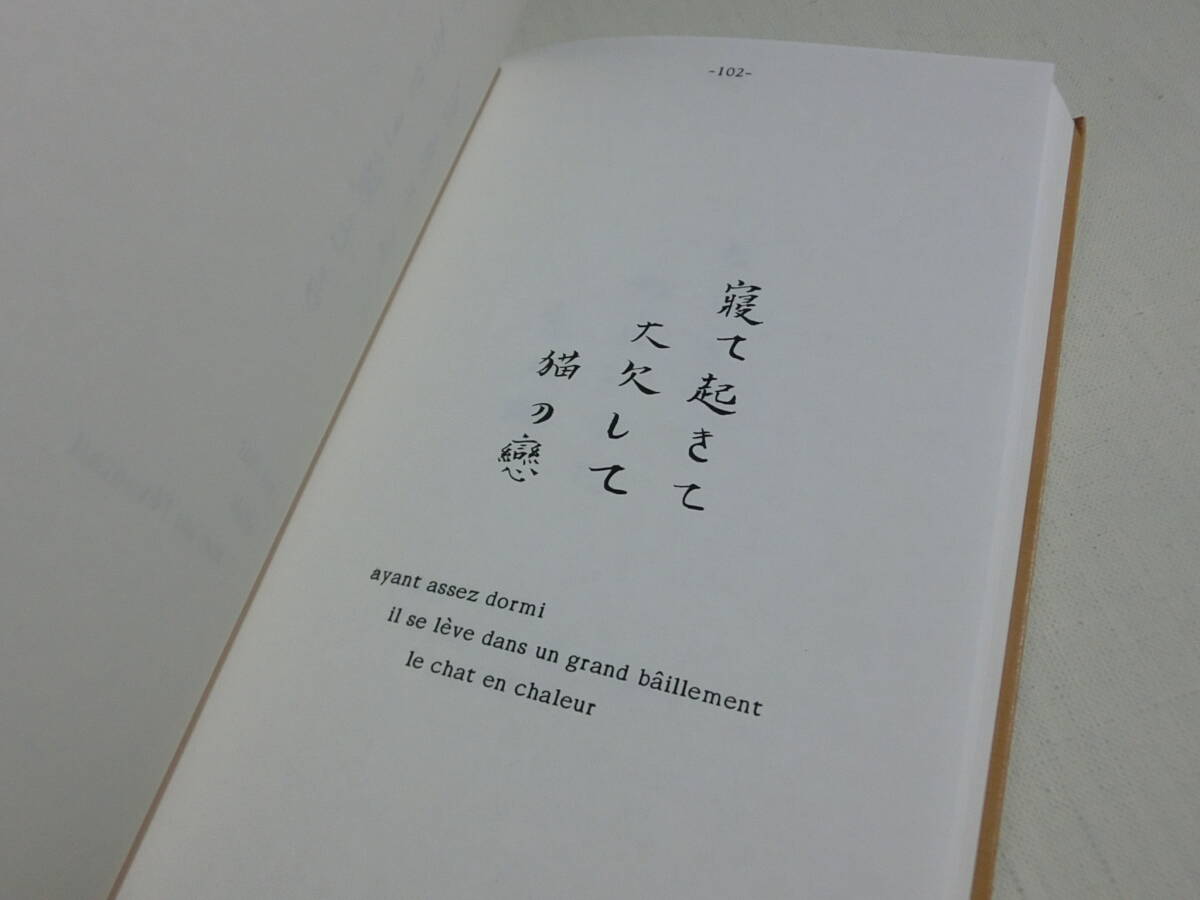 -102-
寝て起きて
大欠して
猫の戀
ayant assez dormi
il se lève dans un grand bâillement
le chat en chaleur